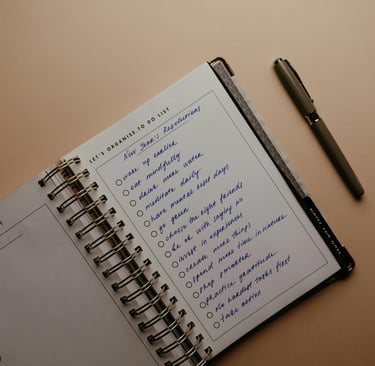 LET'S ORGANISE TO DO LIST
New Year's Resolutions
wake up earlier
eat mindfully
drink more water
meditate daily
have mental rest days
go green
choose the right friends
be ok with saying no
invest in experiences
create more things
spend more time in nature
shop smarter
practice gratitude
do hardest tasks first
take action